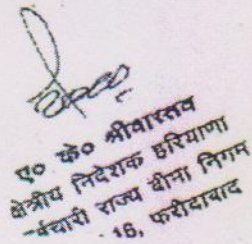 ए० के० श्रीवास्तव
क्षेत्रीय निदेशक हरियाणा
र्मचारी राज्य बीमा निगम
16, फरीदाबाद